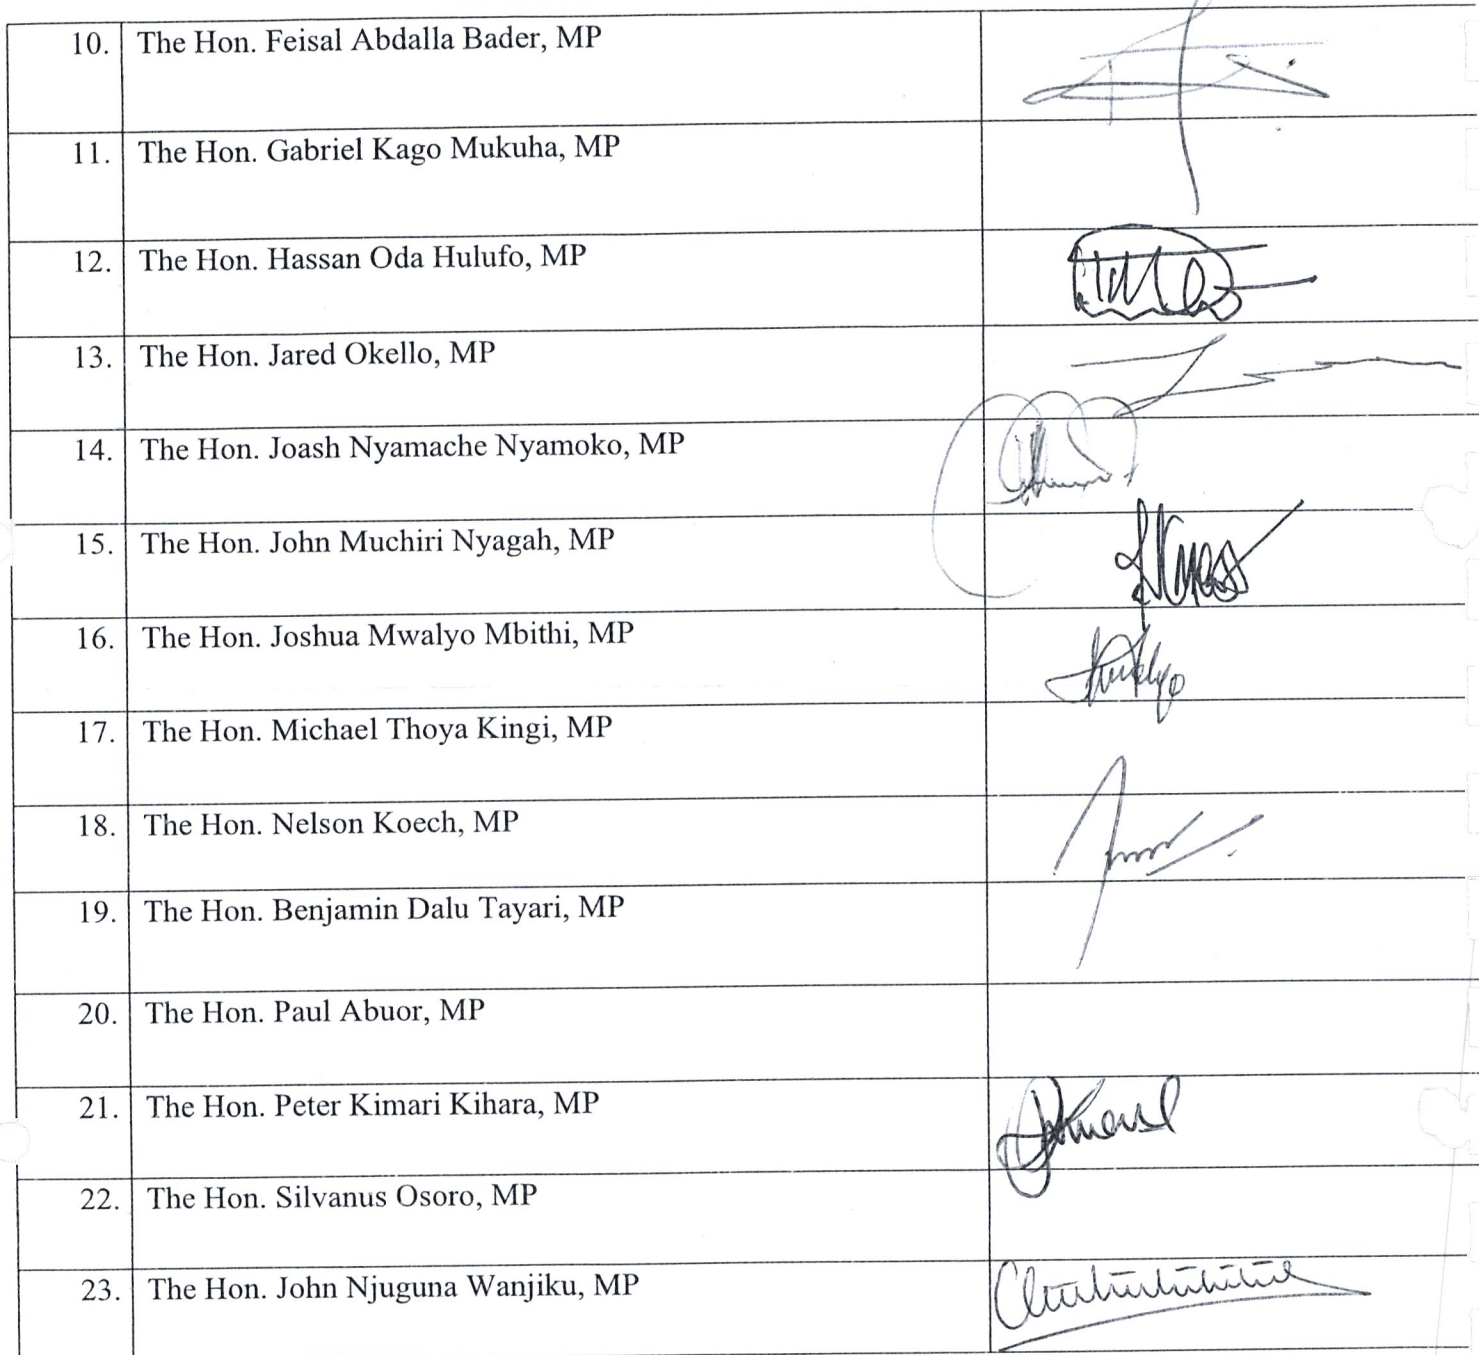 10. The Hon. Feisal Abdalla Bader, MP
11. The Hon. Gabriel Kago Mukuha, MP
12. The Hon. Hassan Oda Hulufo, MP
13. The Hon. Jared Okello, MP
14. The Hon. Joash Nyamache Nyamoko, MP
15. The Hon. John Muchiri Nyagah, MP
16. The Hon. Joshua Mwalyo Mbithi, MP
17. The Hon. Michael Thoya Kingi, MP
18. The Hon. Nelson Koech, MP
19. The Hon. Benjamin Dalu Tayari, MP
20. The Hon. Paul Abuor, MP
21. The Hon. Peter Kimari Kihara, MP
22. The Hon. Silvanus Osoro, MP
23. The Hon. John Njuguna Wanjiku, MP